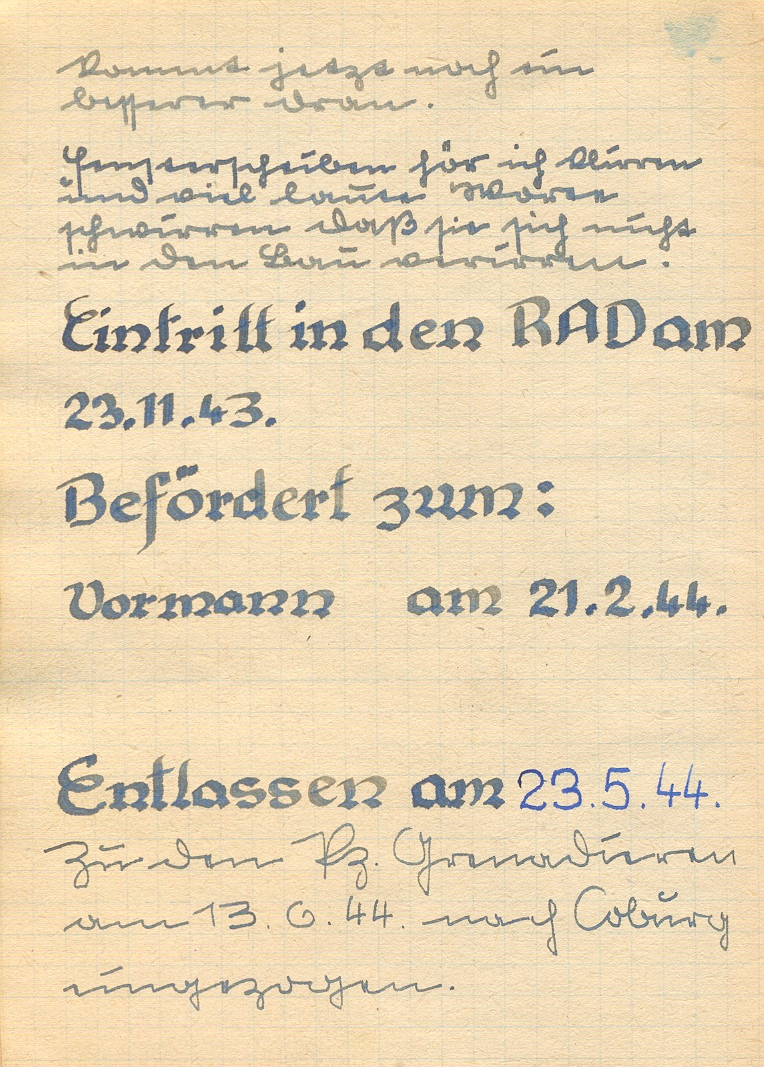 kommt jetzt noch ein
besserer dran.
Fensterscheiben hör ich klirren
und viel laute Worte
schwirren daß sie sich nicht
in den Bau verirren.
Eintritt in den RAD am
23.11.43.
Befördert zum:
Vormann am 21.2.44.
Entlassen am 23.5.44.
Zu den Pz. Grenadieren
am 13.6.44. nach Coburg
eingezogen.